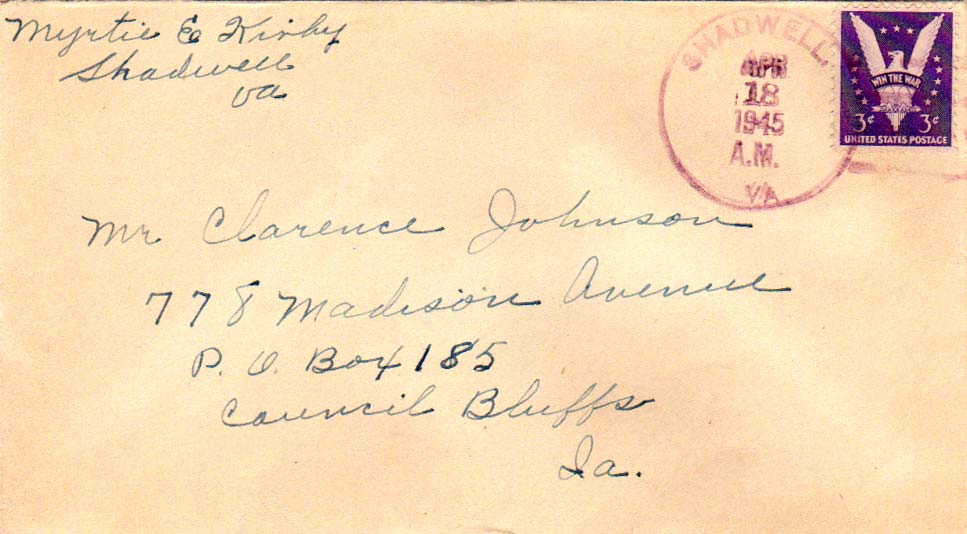 Myrtie E Kirby
Shadwell
Va
SHADWELL,
APR
18
1945
A.M.
VA
WIN THE WAR
3¢ 3¢
UNITED STATES POSTAGE
Mr Clarence Johnson
778 Madison Avenue
P. O. Box 185
Council Bluffs
Ia.